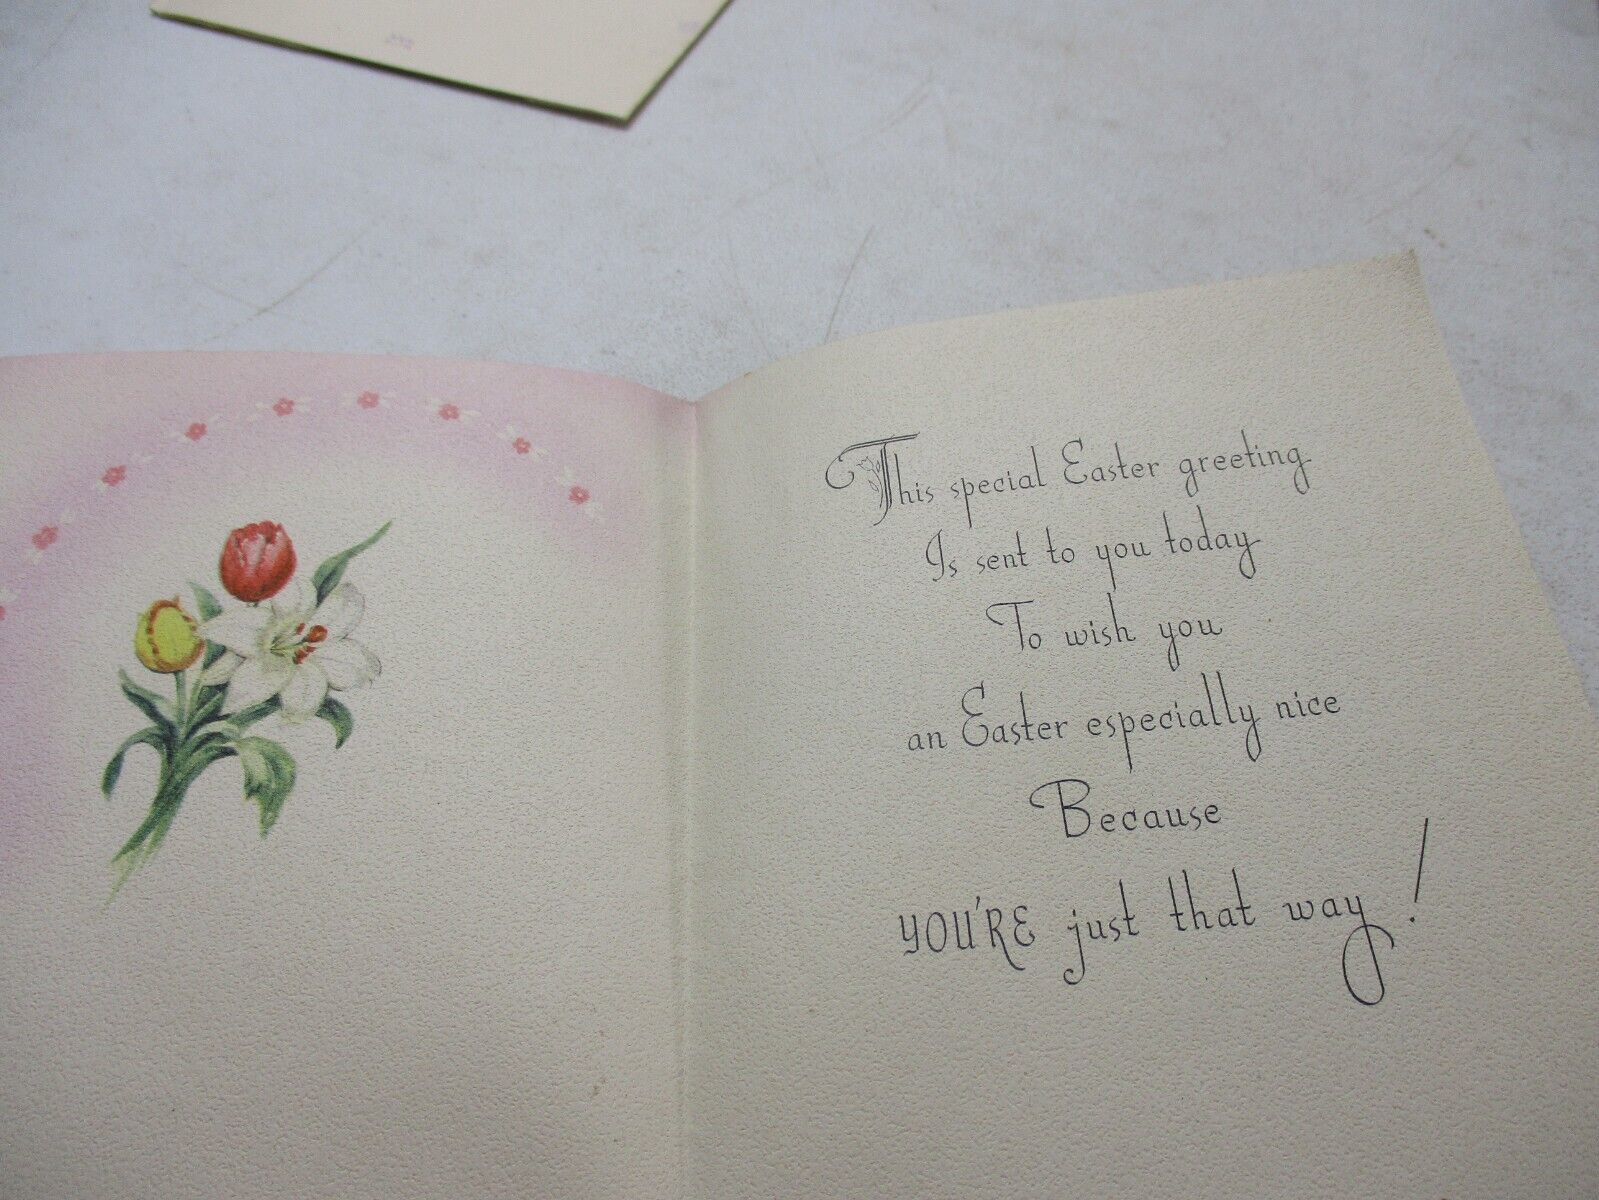 This special Easter greeting
Is sent to you today
To wish you
an Easter especially nice
Because
YOU'RE just that way!